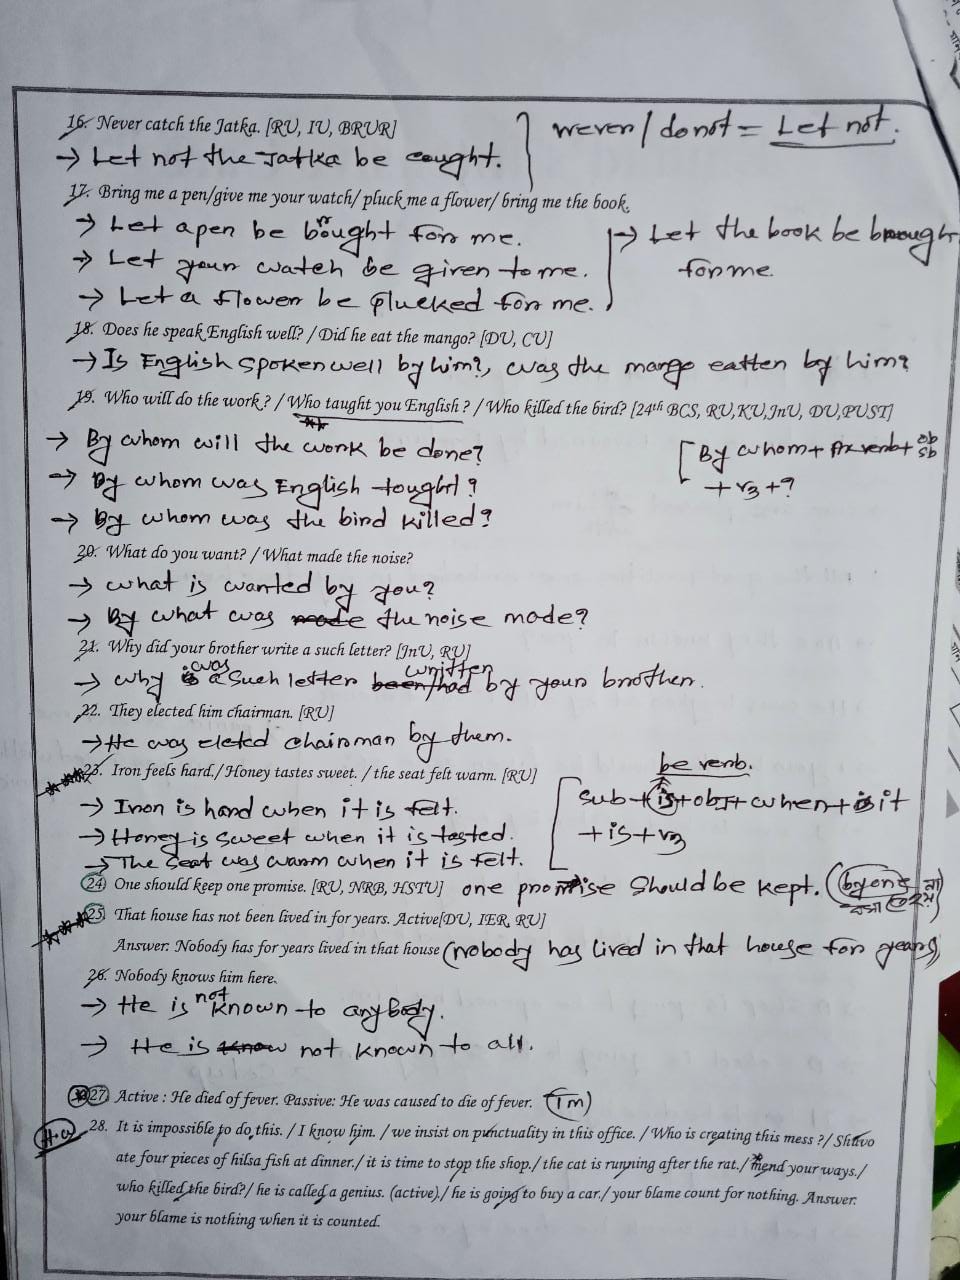 16. Never catch the Jatka. [RU, IU, BRUR]
never / do not = Let not.
→ Let not the Jatka be caught.
17. Bring me a pen/give me your watch/ pluck me a flower/ bring me the book.
→ Let a pen be brought for me.
→ Let the book be brought
→ Let your watch be given to me.
for me.
→ Let a flower be plucked for me.
18. Does he speak English well? / Did he eat the mango? [DU, CU]
→ Is English spoken well by him?, was the mango eatten by him?
19. Who will do the work? / Who taught you English? / Who killed the bird? [24th BCS, RU,KU,JnU, DU,PUST]
→ By whom will the work be done?
[By whom + Ax verb + ob sb
→ By whom was English tought?
+ v3 + ?
→ By whom was the bird killed?
20. What do you want? / What made the noise?
→ what is wanted by you?
→ By what was made the noise made?
21. Why did your brother write a such letter? [JnU, RU]
→ why is was a such letter been/had written by your brother.
22. They elected him chairman. [RU]
→ He was eleted chairman by them.
be verb.
23. Iron feels hard./ Honey tastes sweet. / the seat felt warm. [RU]
sub + is + obj + when + it
→ Iron is hard when it is felt.
+ is + v3
→ Honey is sweet when it is tasted.
→ The seat was warm when it is felt.
24) One should keep one promise. [RU, NRB, HSTU] one promise should be kept. (by one
25) That house has not been lived in for years. Active[DU, IER, RU]
Answer: Nobody has for years lived in that house (Nobody has lived in that house for years)
26. Nobody knows him here.
→ He is not known to anybody.
→ He is know not known to all.
27. Active : He died of fever. Passive: He was caused to die of fever. (Im)
H.W 28. It is impossible to do this. / I know him. / we insist on punctuality in this office. / Who is creating this mess ?/ Shuvo
ate four pieces of hilsa fish at dinner./ it is time to stop the shop./ the cat is running after the rat./ mend your ways./
who killed the bird?/ he is called a genius. (active)./ he is going to buy a car./ your blame count for nothing. Answer:
your blame is nothing when it is counted.